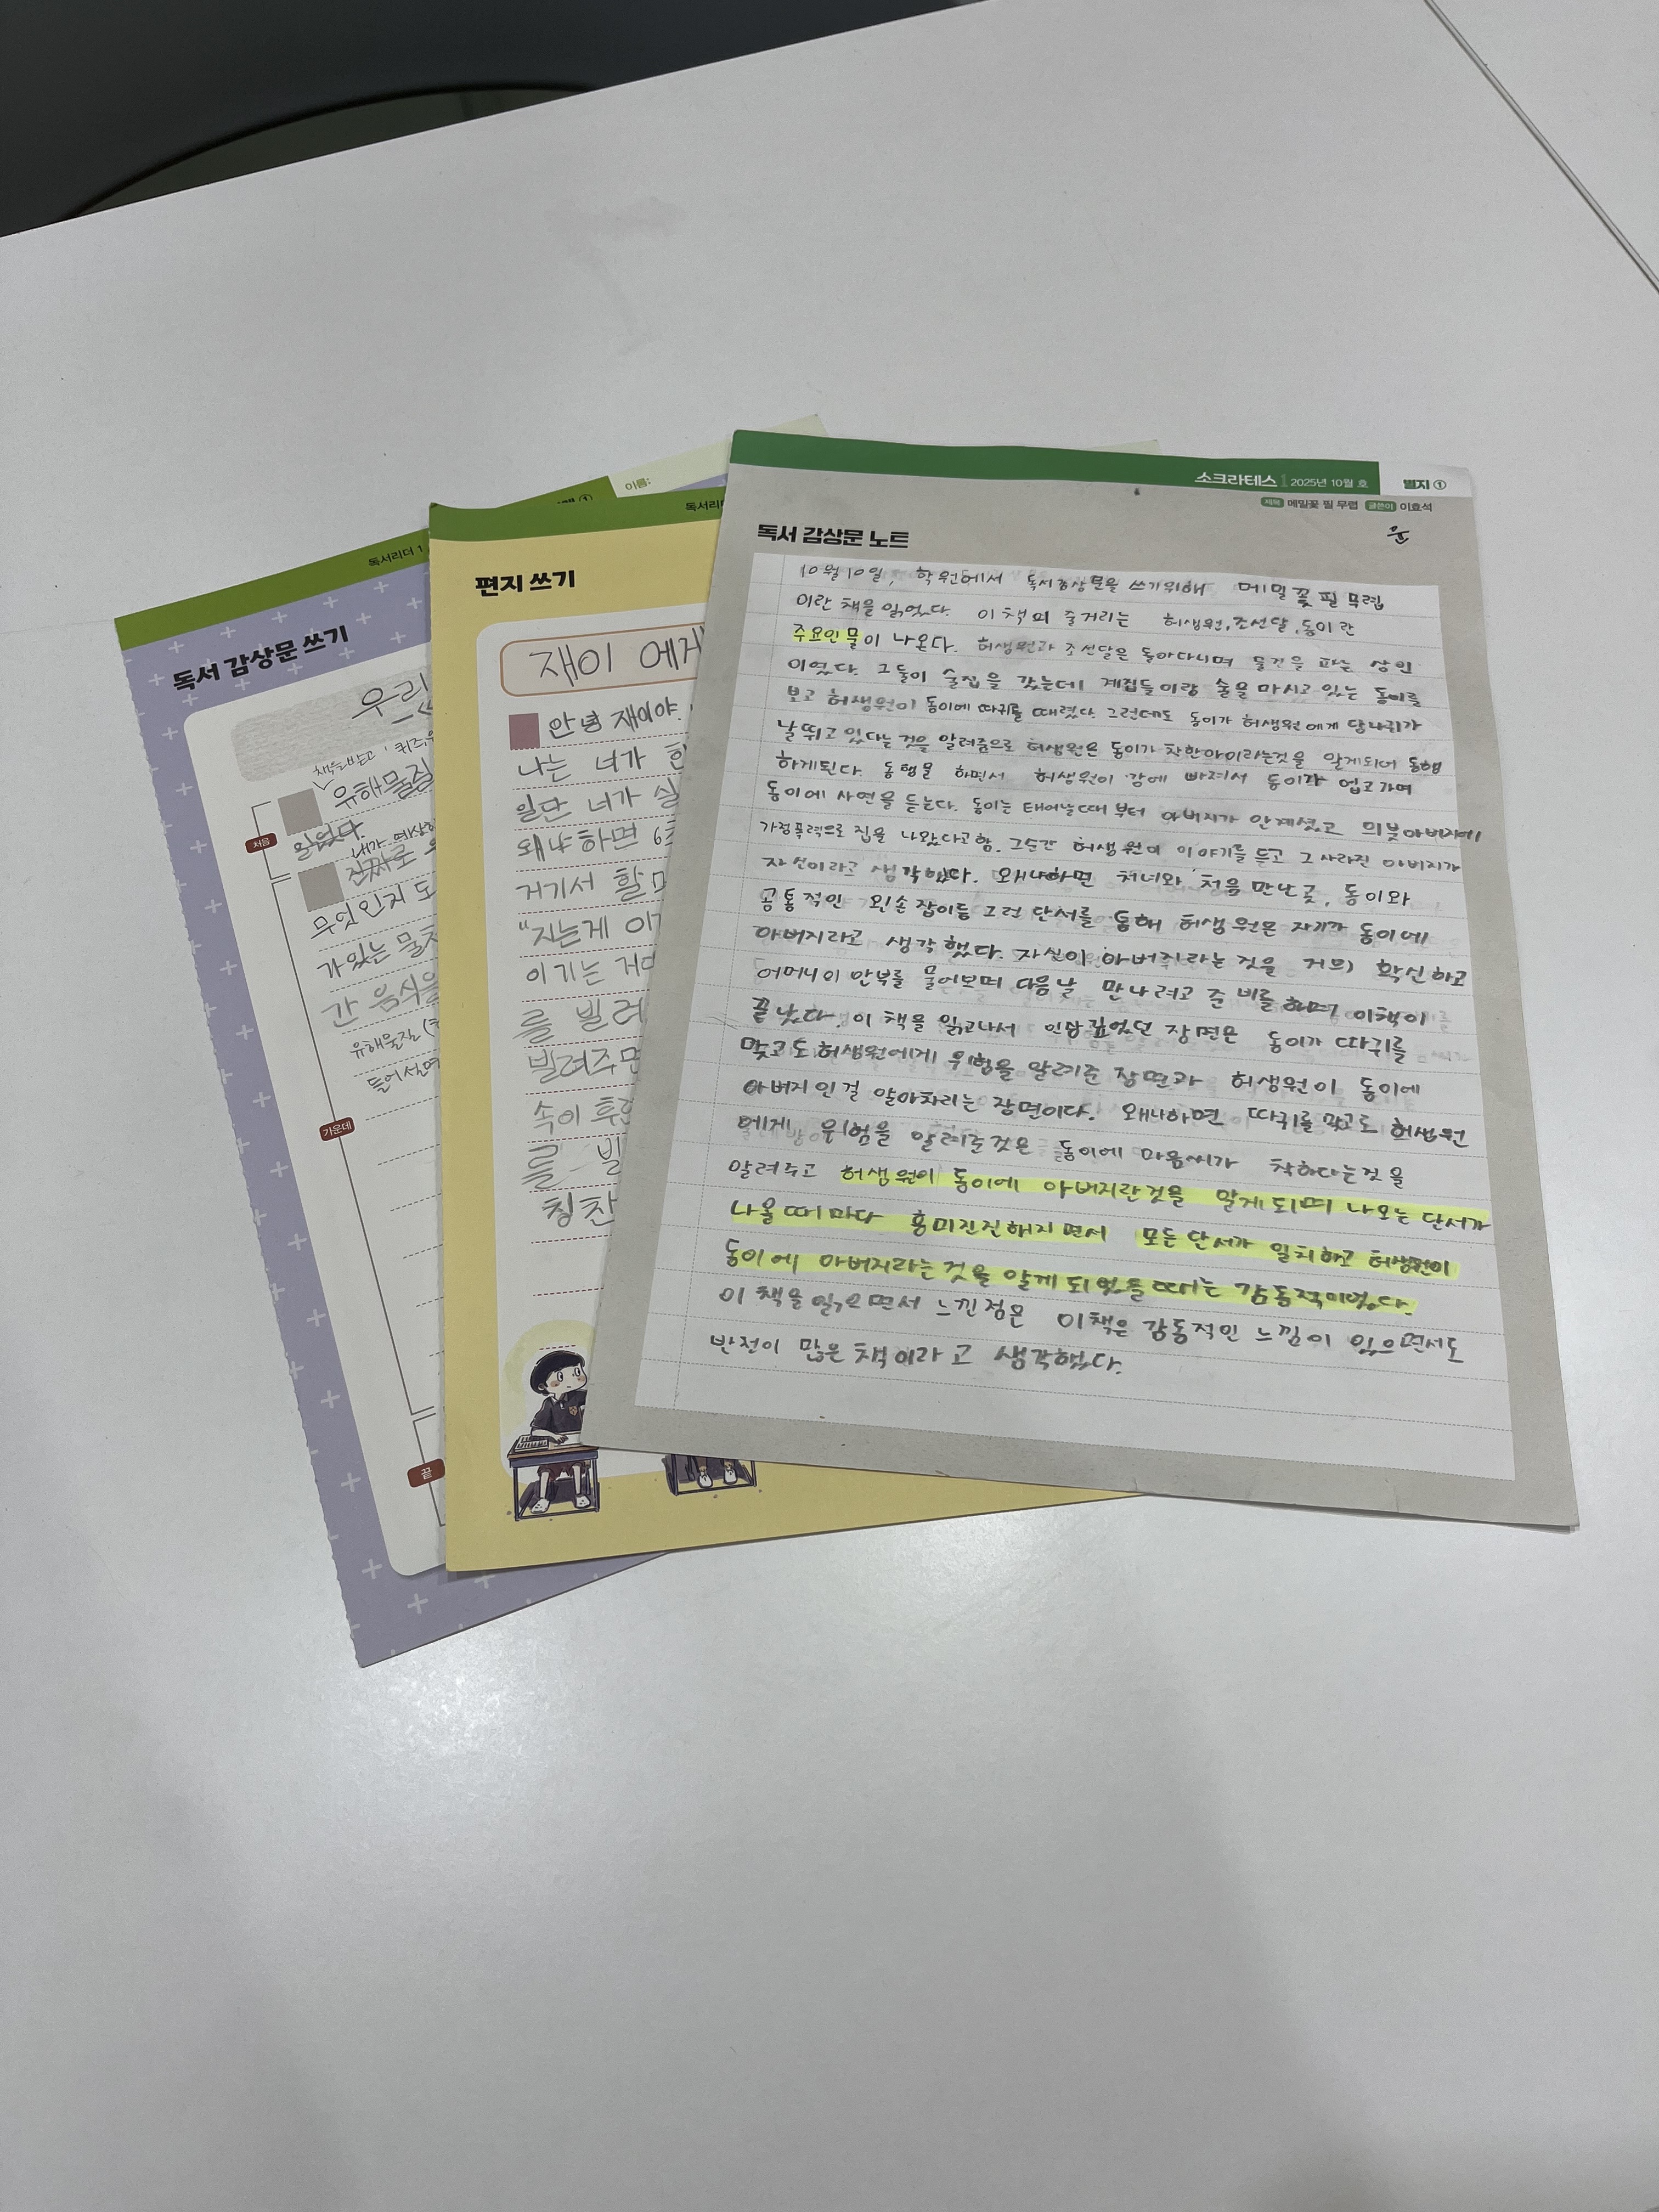 소크라테스 2025년 10월 호 별지 ①
제목 메밀꽃 필 무렵 글쓴이 이효석
독서 감상문 노트
윤
10월10일, 학원에서 독서감상문을 쓰기위해 메밀꽃 필 무렵
이란 책을 읽었다. 이 책의 줄거리는 허생원,조선달,동이란
주요인물이 나온다. 허생원과 조선달은 돌아다니며 물건을 파는 상인
이였다. 그들이 술집을 갔는데 계집들이랑 술을 마시고 있는 동이를
보고 허생원이 동이에 따귀를 때렸다. 그런데도 동이가 허생원에게 당나귀가
날뛰고 있다는 것을 알려줌으로 허생원은 동이가 착한아이라는것을 알게되어 동행
하게된다. 동행을 하면서 허생원이 강에 빠져서 동이가 업고가며
동이에 사연을 듣는다. 동이는 태어날때 부터 아버지가 안계셨고 의붓아버지에
가정폭력으로 집을 나왔다고함. 그순간 허생원이 이야기를 듣고 그 사라진 아버지가
자신이라고 생각했다. 왜냐하면 처녀와 처음 만난곳, 동이와
공통적인 왼손잡이등 그런 단서를 통해 허생원은 자기가 동이에
아버지라고 생각했다. 자신이 아버지라는 것을 거의 확신하고
어머니이 안부를 물어보며 다음날 만나려고 준비를 하며 이책이
끝났다. 이 책을 읽고나서 인상깊었던 장면은 동이가 따귀를
맞고도 허생원에게 위험을 알려준 장면과 허생원이 동이에
아버지인걸 알아차리는 장면이다. 왜냐하면 따귀를 맞고도 허생원
에게 위험을 알려준것은 동이에 마음씨가 착하다는것을
알려주고 허생원이 동이에 아버지란것을 알게 되며 나오는 단서가
나올때마다 흥미진진해지면서 모든단서가 일치하고 허생원이
동이에 아버지라는것을 알게 되었을때는 감동적이였다.
이 책을읽으면서 느낀점은 이책은 감동적인 느낌이 있으면서도
반전이 많은 책이라고 생각했다.
독서리
편지 쓰기
재이 에게
안녕 재이야.
나는 너가 한
일단 너가 실
왜냐하면 6
거기서 할
"지는게 이
이기는 거
를 빌려
빌려주면
속이 후련
를 빌
칭찬
이름:
①
독서리더 1
독서 감상문 쓰기
우리
책을받고
유해물질
읽었다.
처음
내가
진짜로
무엇인지 도
가있는 물
간 음식을
유해물질
들어
가운데
끝